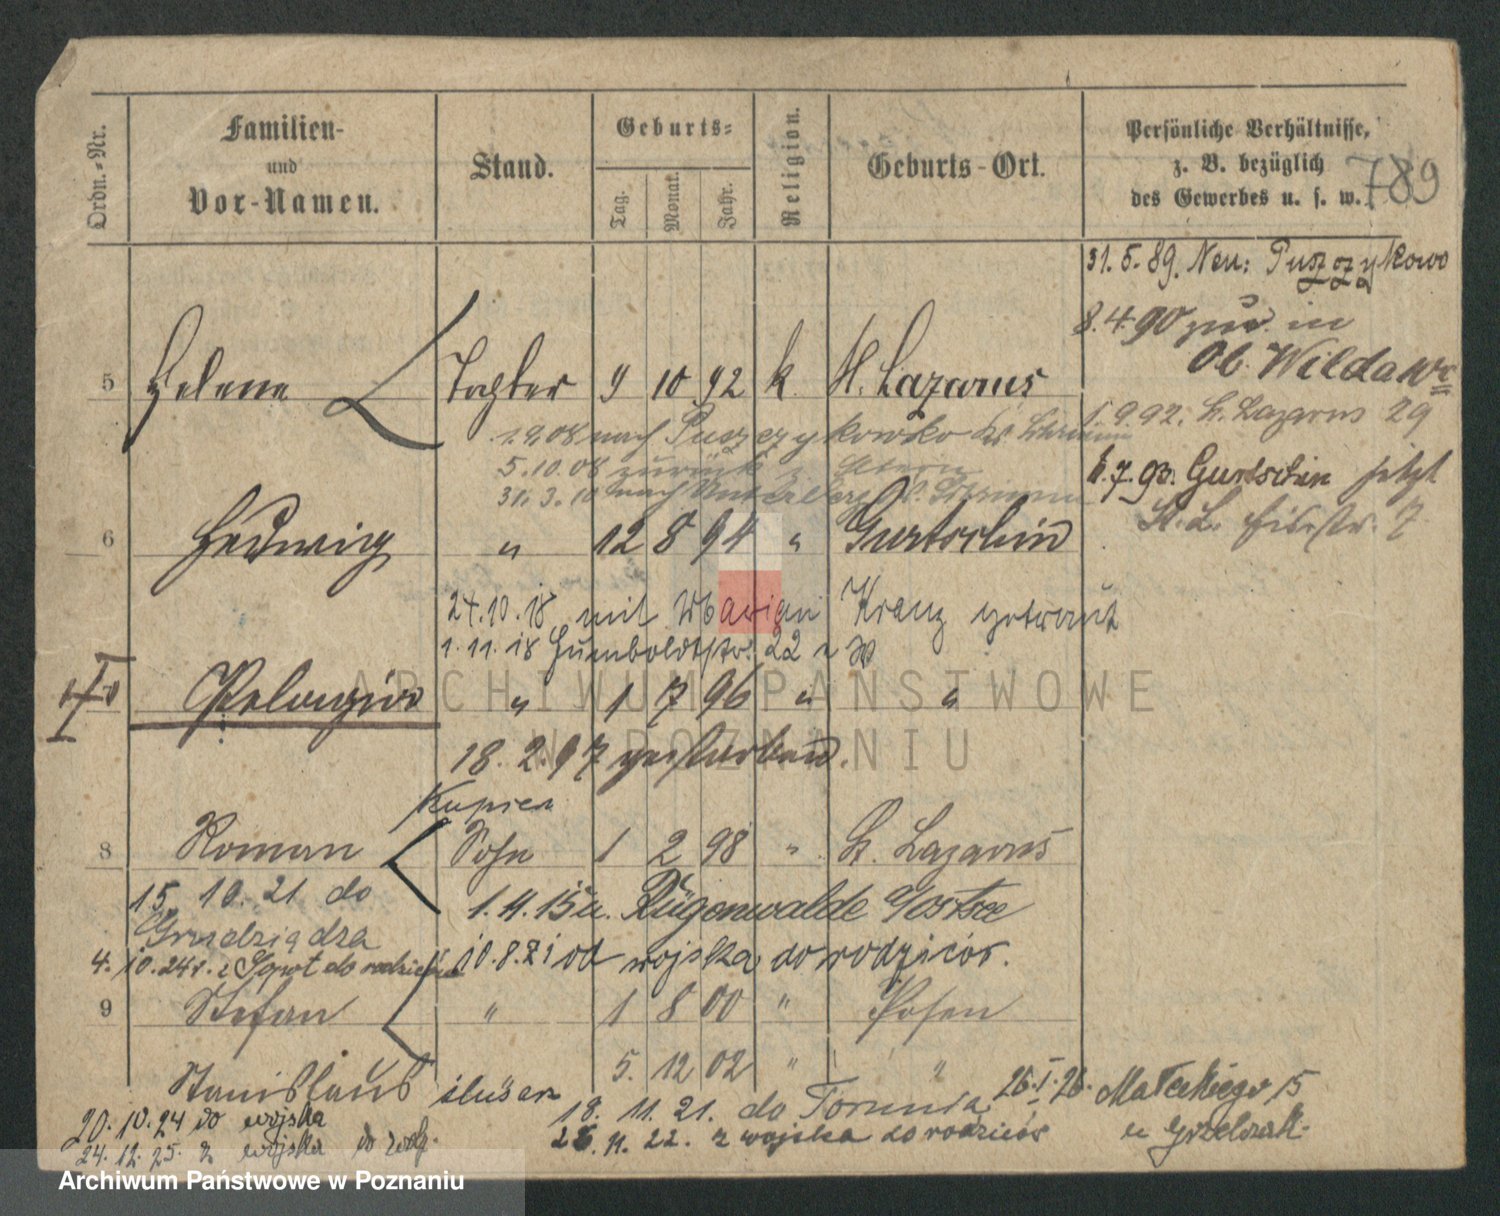 Ordn.-Nr.
Familien-
und
Vor-Namen.
Stand.
Geburts-
Tag.
Monat.
Jahr.
Religion.
Geburts-Ort.
Persönliche Verhältnisse,
z. B. bezüglich
des Gewerbes u. s. w.
789
31. 5. 89. Neu: Puszczykowo
8. 4. 90 zur. in
Ob. Wilda
1. 9. 92. St. Lazarus 29
6. 7. 93. Gurtschin jetzt
St. L. 7
5 Helene Tochter 9 10 92 k. St. Lazarus
1. 9. 08 nach Puszczykowko Kr. Schrimm
5. 10. 08 zurück z. Eltern
31. 3. 10 nach Unterberg Kr. Schrimm
6 Hedwig " 12 8 94 " Gurtschin
24. 10. 18 mit Kranz getraut
1. 11. 18 Humboldtstr. 22
Pelagia " 1 7 96 " "
18. 2. 97 gestorben.
Kupiec
8 Roman Sohn 1 2 98 " St. Lazarus
15. 10. 21 do
Grudziądza
1. 4. 15 Rügenwalde Ostsee
4. 10. 24 r. z Sopot do rodziców
10. 8. 21 od wojska do rodziców.
9 Stefan " 1 8 00 " Posen
Stanislaus ślusarz 5. 12 02 " "
20. 10. 24 do wojska
24. 12. 25. z wojska do
18. 11. 21. do Torunia
26. 11. 22. z wojska do rodziców
26. I. 26. Małeckiego 15
u
ARCHIWUM PAŃSTWOWE
W POZNANIU
Archiwum Państwowe w Poznaniu